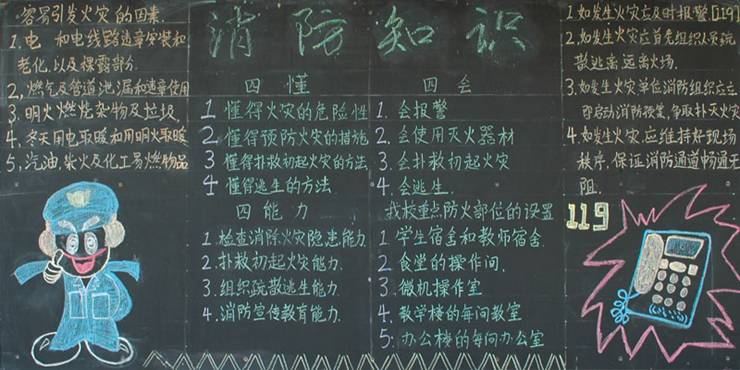 容易引发火灾的因素
1.电 和电线路违章安装和
老化.以及裸露部分.
2,燃气及管道泄漏和违章使用
3.明火燃烧杂物及垃圾,
4.冬天用电取暖和用明火取暖
5,汽油,柴火及化工易燃物品
消防知识
四懂
1 懂得火灾的危险性
2 懂得预防火灾的措施
3 懂得扑救初起火灾的方法
4 懂得逃生的方法
四能力
1.检查消除火灾隐患能力
2.扑救初起火灾能力.
3.组织疏散逃生能力
4.消防宣传教育能力.
四会
1.会报警
2.会使用灭火器材
3.会扑救初起火灾
4.会逃生.
我校重点防火部位的设置
1.学生宿舍和教师宿舍.
2.食堂的操作间.
3.微机操作室
4.教学楼的每间教室
5.办公楼的每间办公室
1.如发生火灾应及时报警[119]
2.如发生火灾应首先组织人员疏
散逃离,远离火场.
3.如发生火灾单位消防组织应立
即启动消防预案,争取扑灭火灾
4.如发生火灾.应维持好现场
秩序.保证消防通道畅通无
阻.
119